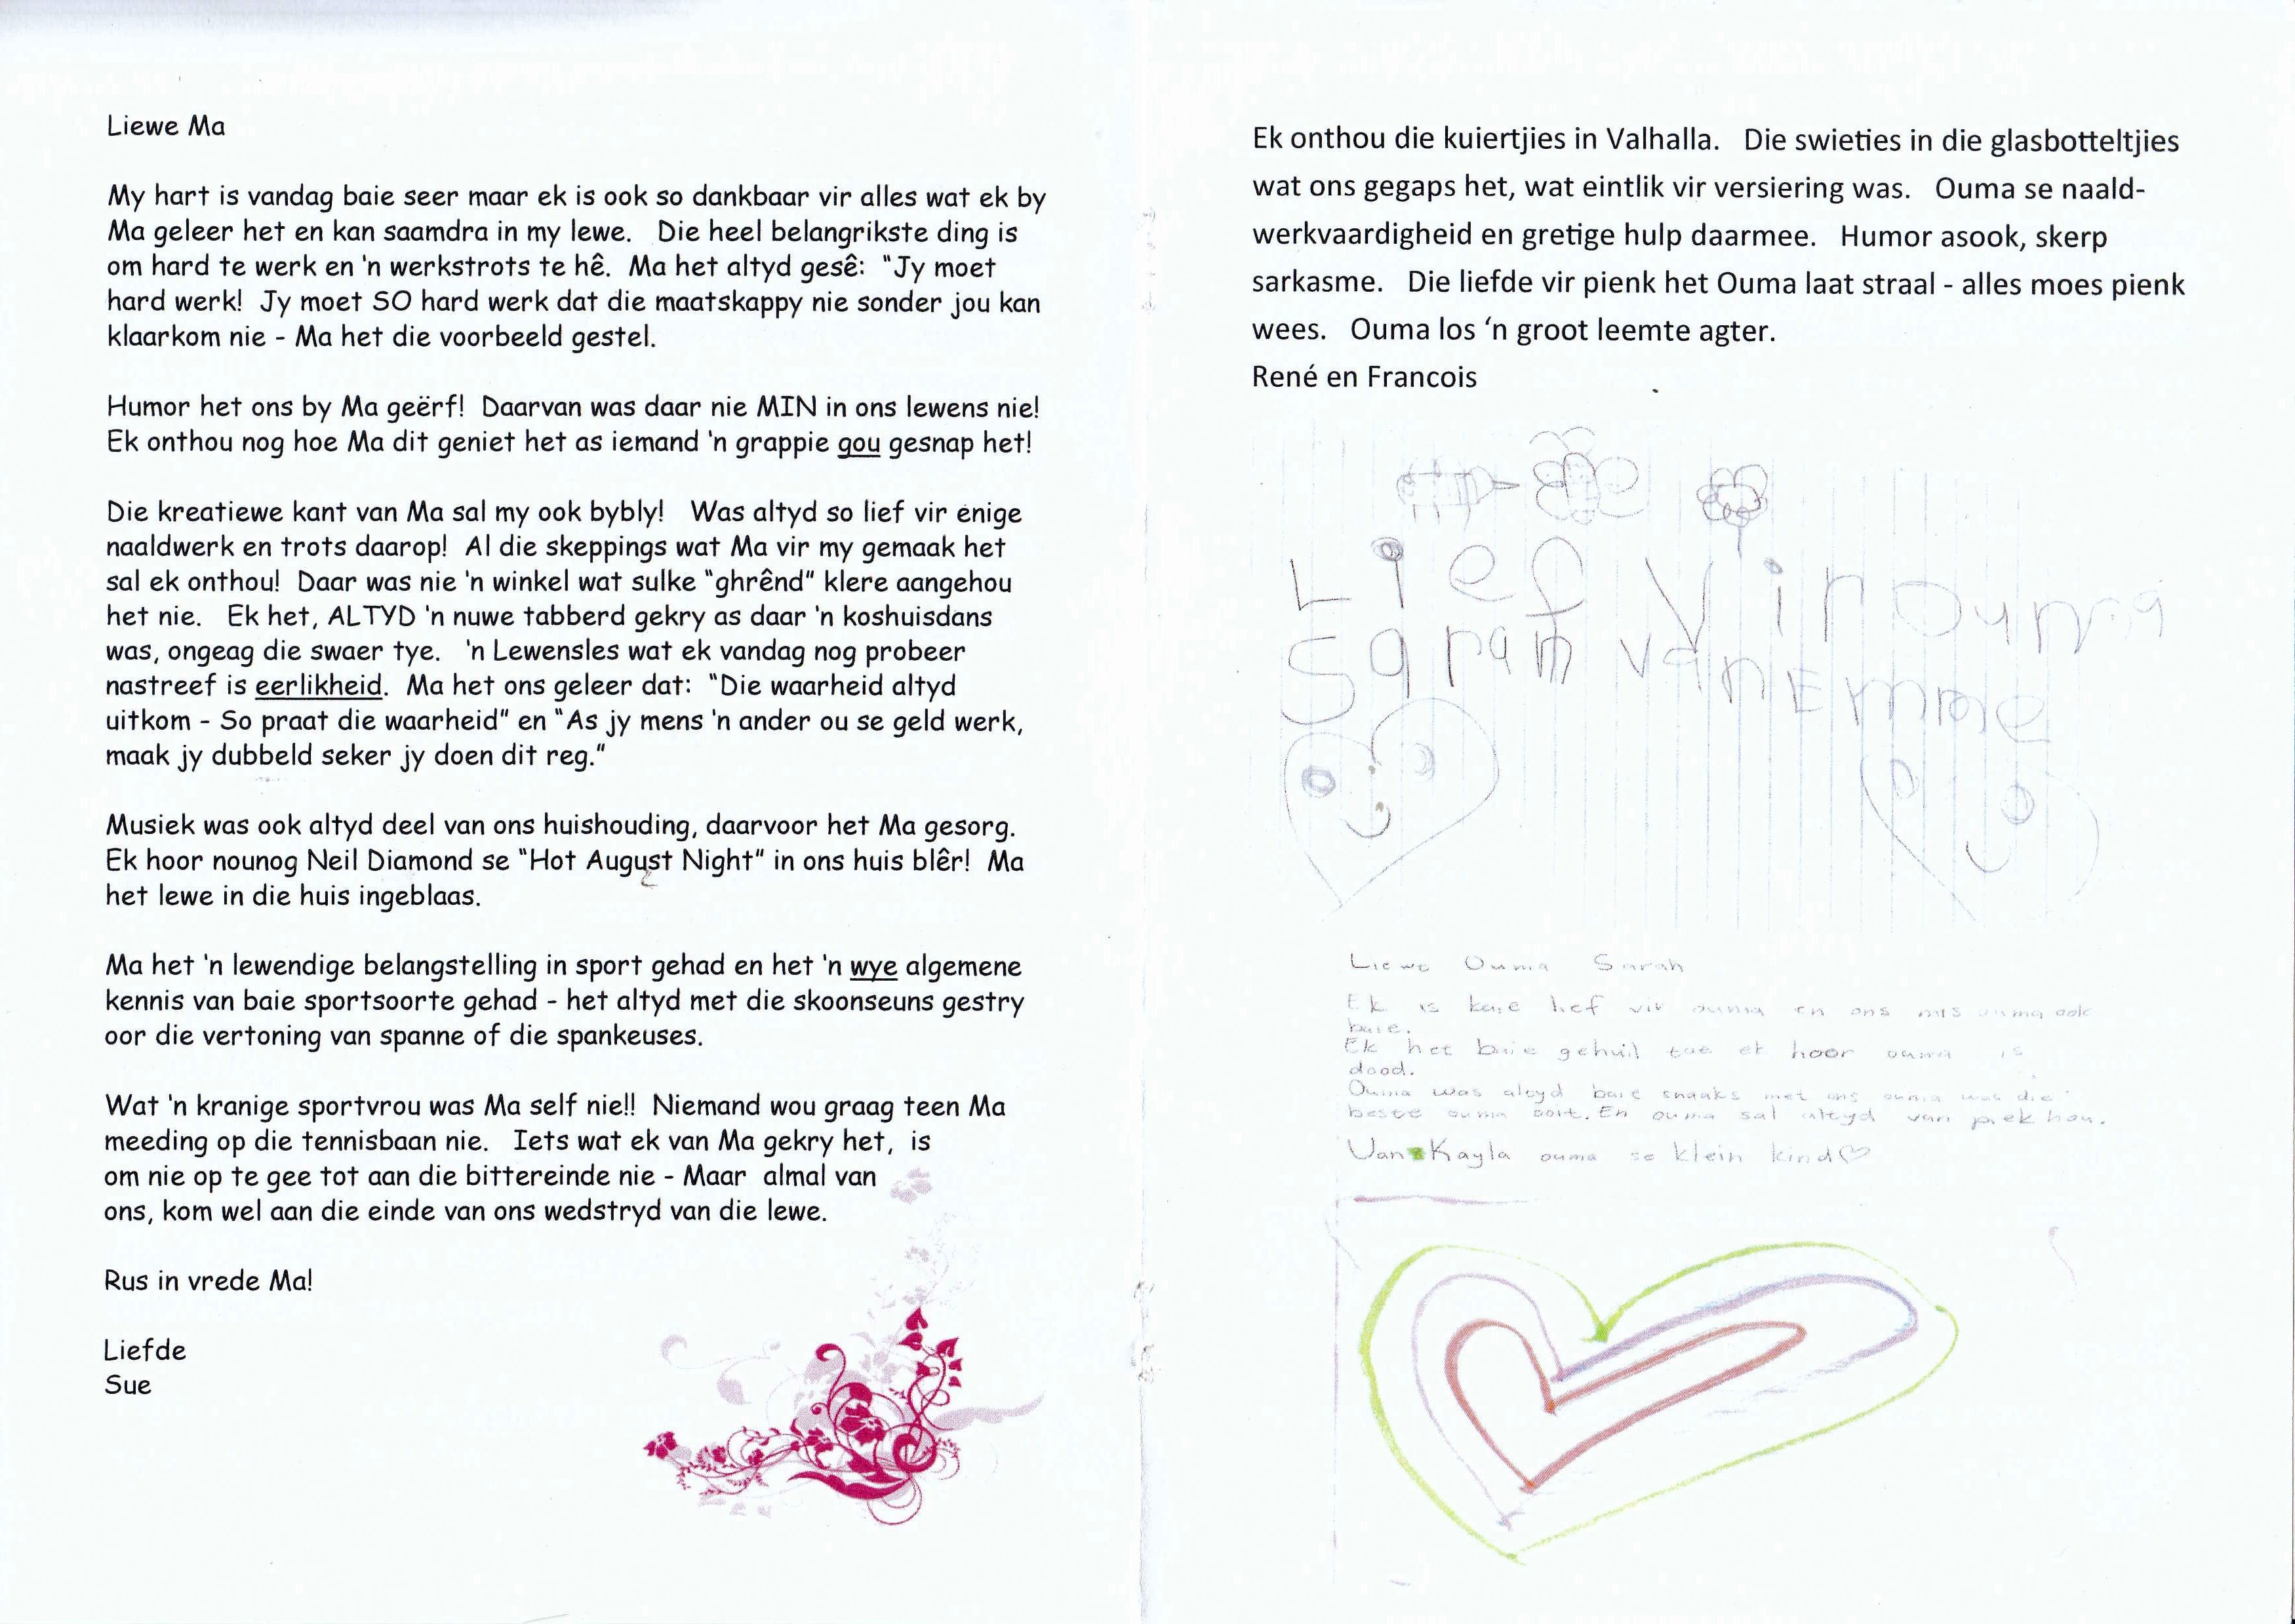 Liewe Ma
My hart is vandag baie seer maar ek is ook so dankbaar vir alles wat ek by
Ma geleer het en kan saamdra in my lewe. Die heel belangrikste ding is
om hard te werk en 'n werkstrots te hê. Ma het altyd gesê: "Jy moet
hard werk! Jy moet SO hard werk dat die maatskappy nie sonder jou kan
klaarkom nie - Ma het die voorbeeld gestel.
Humor het ons by Ma geërf! Daarvan was daar nie MIN in ons lewens nie!
Ek onthou nog hoe Ma dit geniet het as iemand 'n grappie gou gesnap het!
Die kreatiewe kant van Ma sal my ook bybly! Was altyd so lief vir enige
naaldwerk en trots daarop! Al die skeppings wat Ma vir my gemaak het
sal ek onthou! Daar was nie 'n winkel wat sulke "ghrênd" klere aangehou
het nie. Ek het, ALTYD 'n nuwe tabberd gekry as daar 'n koshuisdans
was, ongeag die swaer tye. 'n Lewensles wat ek vandag nog probeer
nastreef is eerlikheid. Ma het ons geleer dat: "Die waarheid altyd
uitkom - So praat die waarheid" en "As jy mens 'n ander ou se geld werk,
maak jy dubbeld seker jy doen dit reg."
Musiek was ook altyd deel van ons huishouding, daarvoor het Ma gesorg.
Ek hoor nounog Neil Diamond se "Hot August Night" in ons huis blêr! Ma
het lewe in die huis ingeblaas.
Ma het 'n lewendige belangstelling in sport gehad en het 'n wye algemene
kennis van baie sportsoorte gehad - het altyd met die skoonseuns gestry
oor die vertoning van spanne of die spankeuses.
Wat 'n kranige sportvrou was Ma self nie!! Niemand wou graag teen Ma
meeding op die tennisbaan nie. Iets wat ek van Ma gekry het, is
om nie op te gee tot aan die bittereinde nie - Maar almal van
ons, kom wel aan die einde van ons wedstryd van die lewe.
Rus in vrede Ma!
Liefde
Sue
Ek onthou die kuiertjies in Valhalla. Die swieties in die glasbotteltjies
wat ons gegaps het, wat eintlik vir versiering was. Ouma se naald-
werkvaardigheid en gretige hulp daarmee. Humor asook, skerp
sarkasme. Die liefde vir pienk het Ouma laat straal - alles moes pienk
wees. Ouma los 'n groot leemte agter.
René en Francois
Lief vir ouma
Sarah van Emme
Liewe Ouma Sarah
Ek is baie lief vir ouma en ons mis ouma ook
baie.
Ek het baie gehuil toe ek hoor ouma is
dood.
Ouma was altyd baie snaaks met ons ouma was die
beste ouma ooit. En ouma sal altyd van piek hou.
Van Kayla ouma se klein kind